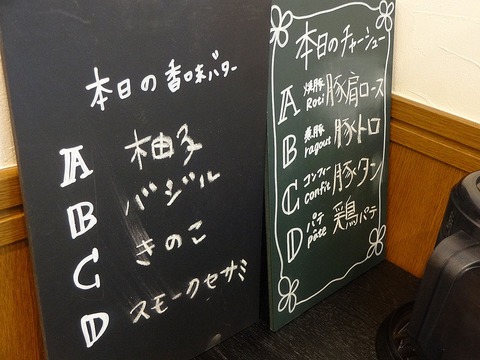 本日の香味バター
A 柚子
B バジル
C きのこ
D スモークセサミ
本日のチャーシュー
A 焼豚 Roti 豚肩ロース
B 煮豚 ragout 豚トロ
C コンフィー confit 豚タン
D パテ pase 鶏パテ